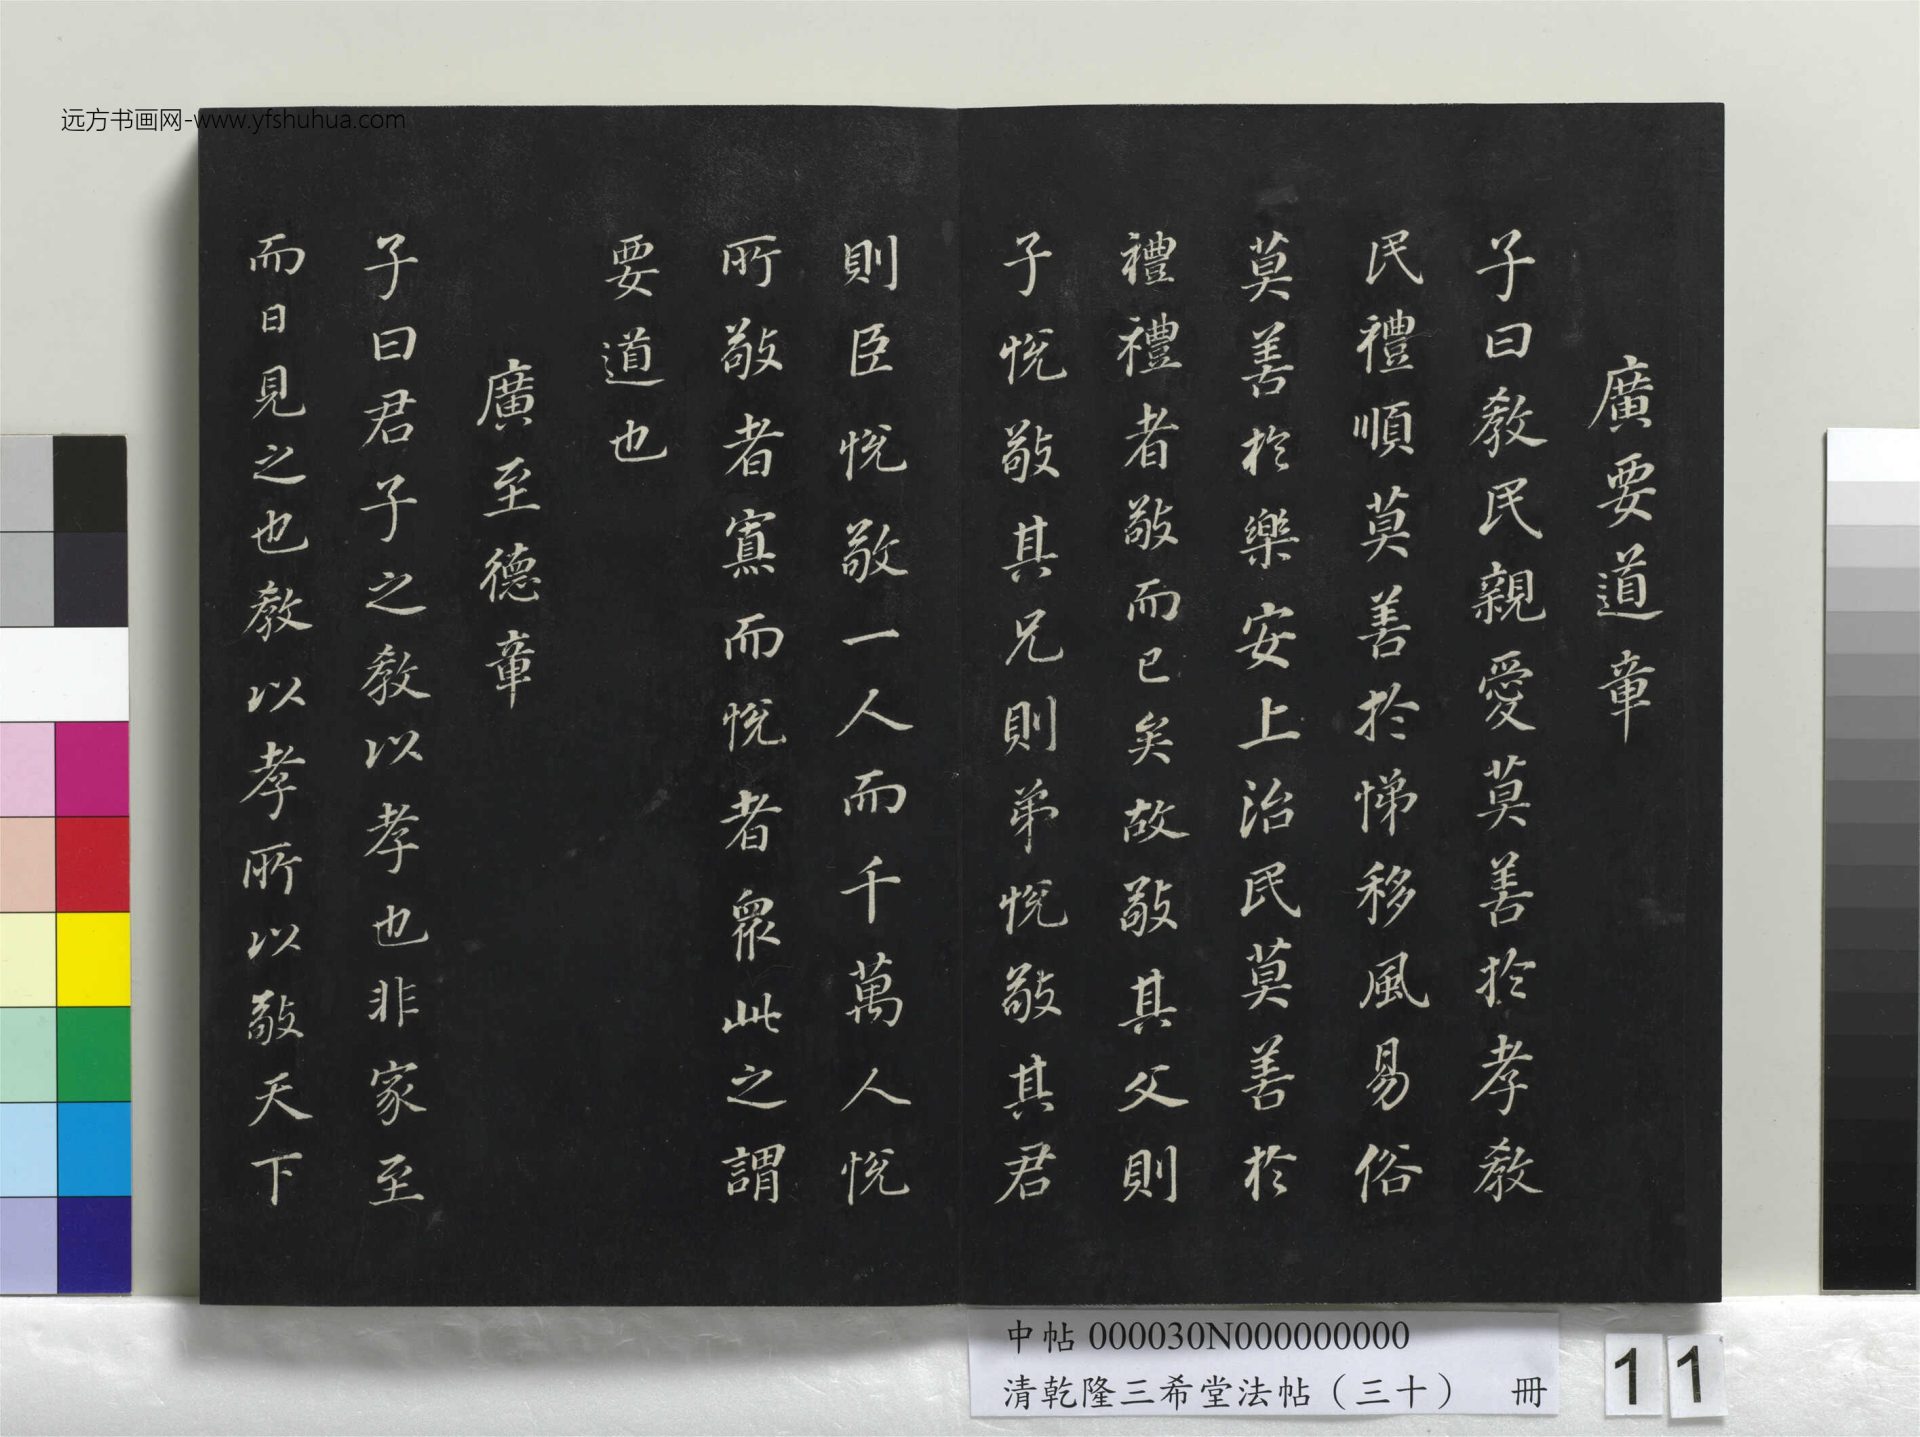 远方书画网-www.yfshuhua.com
廣要道章
子曰教民親愛莫善於孝教
民禮順莫善於悌移風易俗
莫善於樂安上治民莫善於
禮禮者敬而已矣故敬其父則
子悅敬其兄則弟悅敬其君
則臣悅敬一人而千萬人悅
所敬者寡而悅者眾此之謂
要道也
廣至德章
子曰君子之教以孝也非家至
而日見之也教以孝所以敬天下
中帖 000030N000000000
清乾隆三希堂法帖（三十） 冊
11